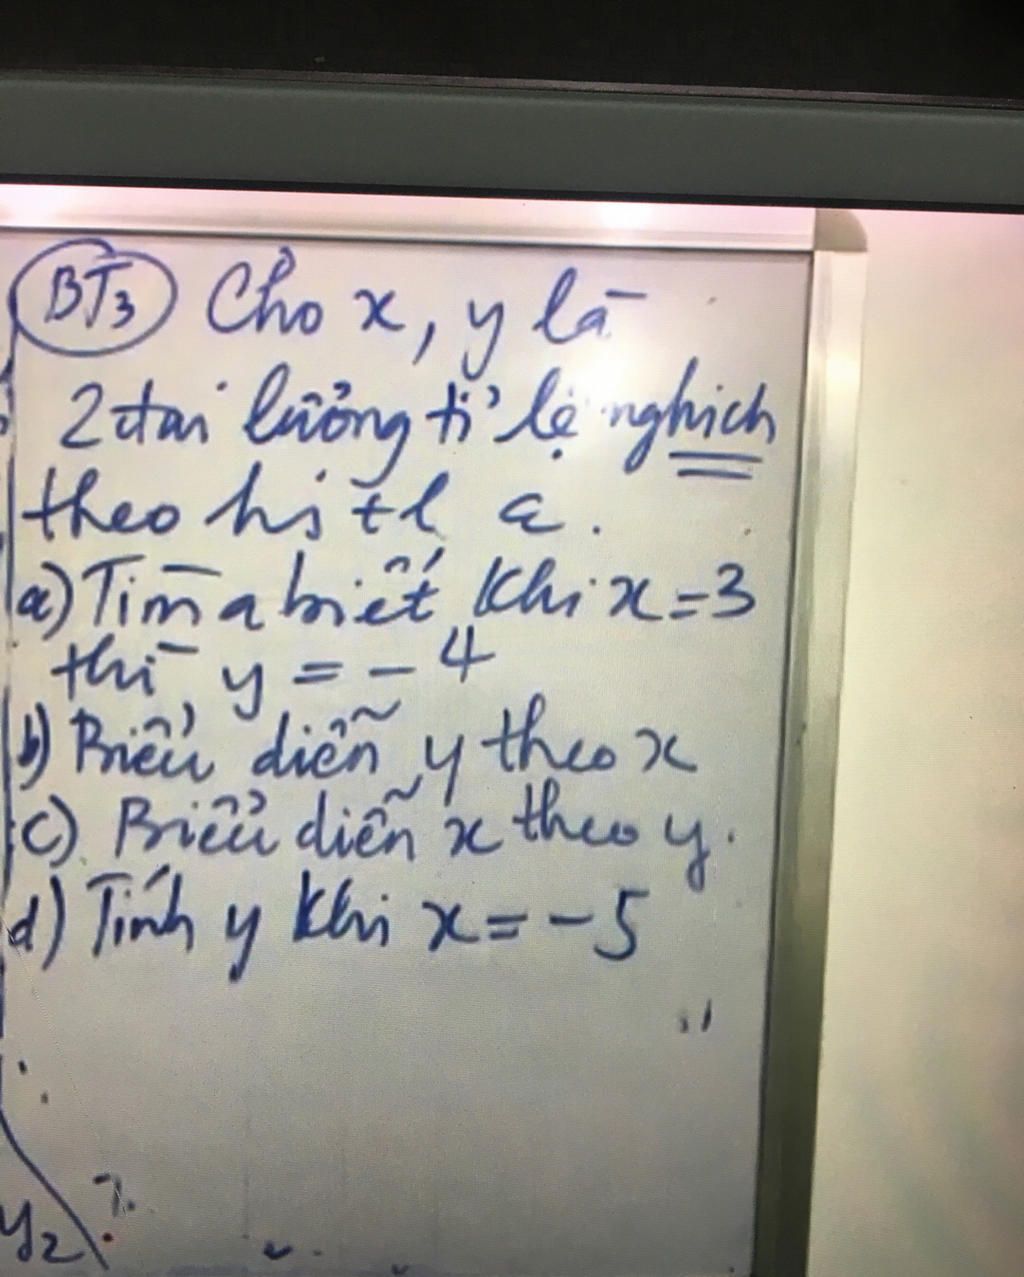 BT3 Cho x, y là
2 đại lượng tỉ lệ nghịch
theo hs tl a.
a) Tìm a biết khi x = 3
thì y = - 4
b) Biểu diễn y theo x
c) Biểu diễn x theo y.
d) Tính y khi x = - 5
y2 ?